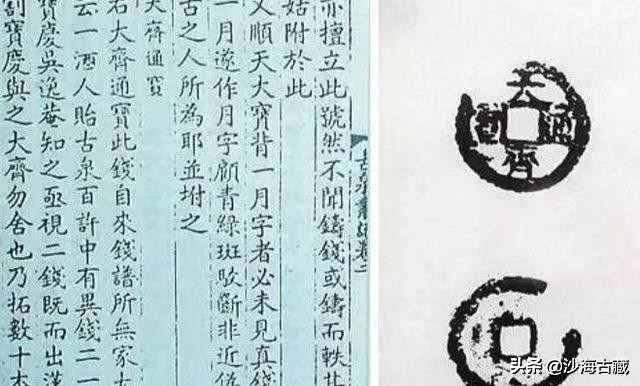 亦擅立此號然不聞鑄錢或鑄而軼其
姑附於此
又順天大寶背一月字者必未見真錢
一月遂作月字顧青綠斑駁斷非近偽
古之人所為耶並坿之
大齊通寶
右大齊通寶此錢自來錢譜所無家大
云一酒人貽古泉百許中有異錢二一
寶慶吳逸菴知之亟視二錢既而出漢
割寶慶與之大齊勿舍也乃拓數十本
大齊通寶
头条 @沙海古藏